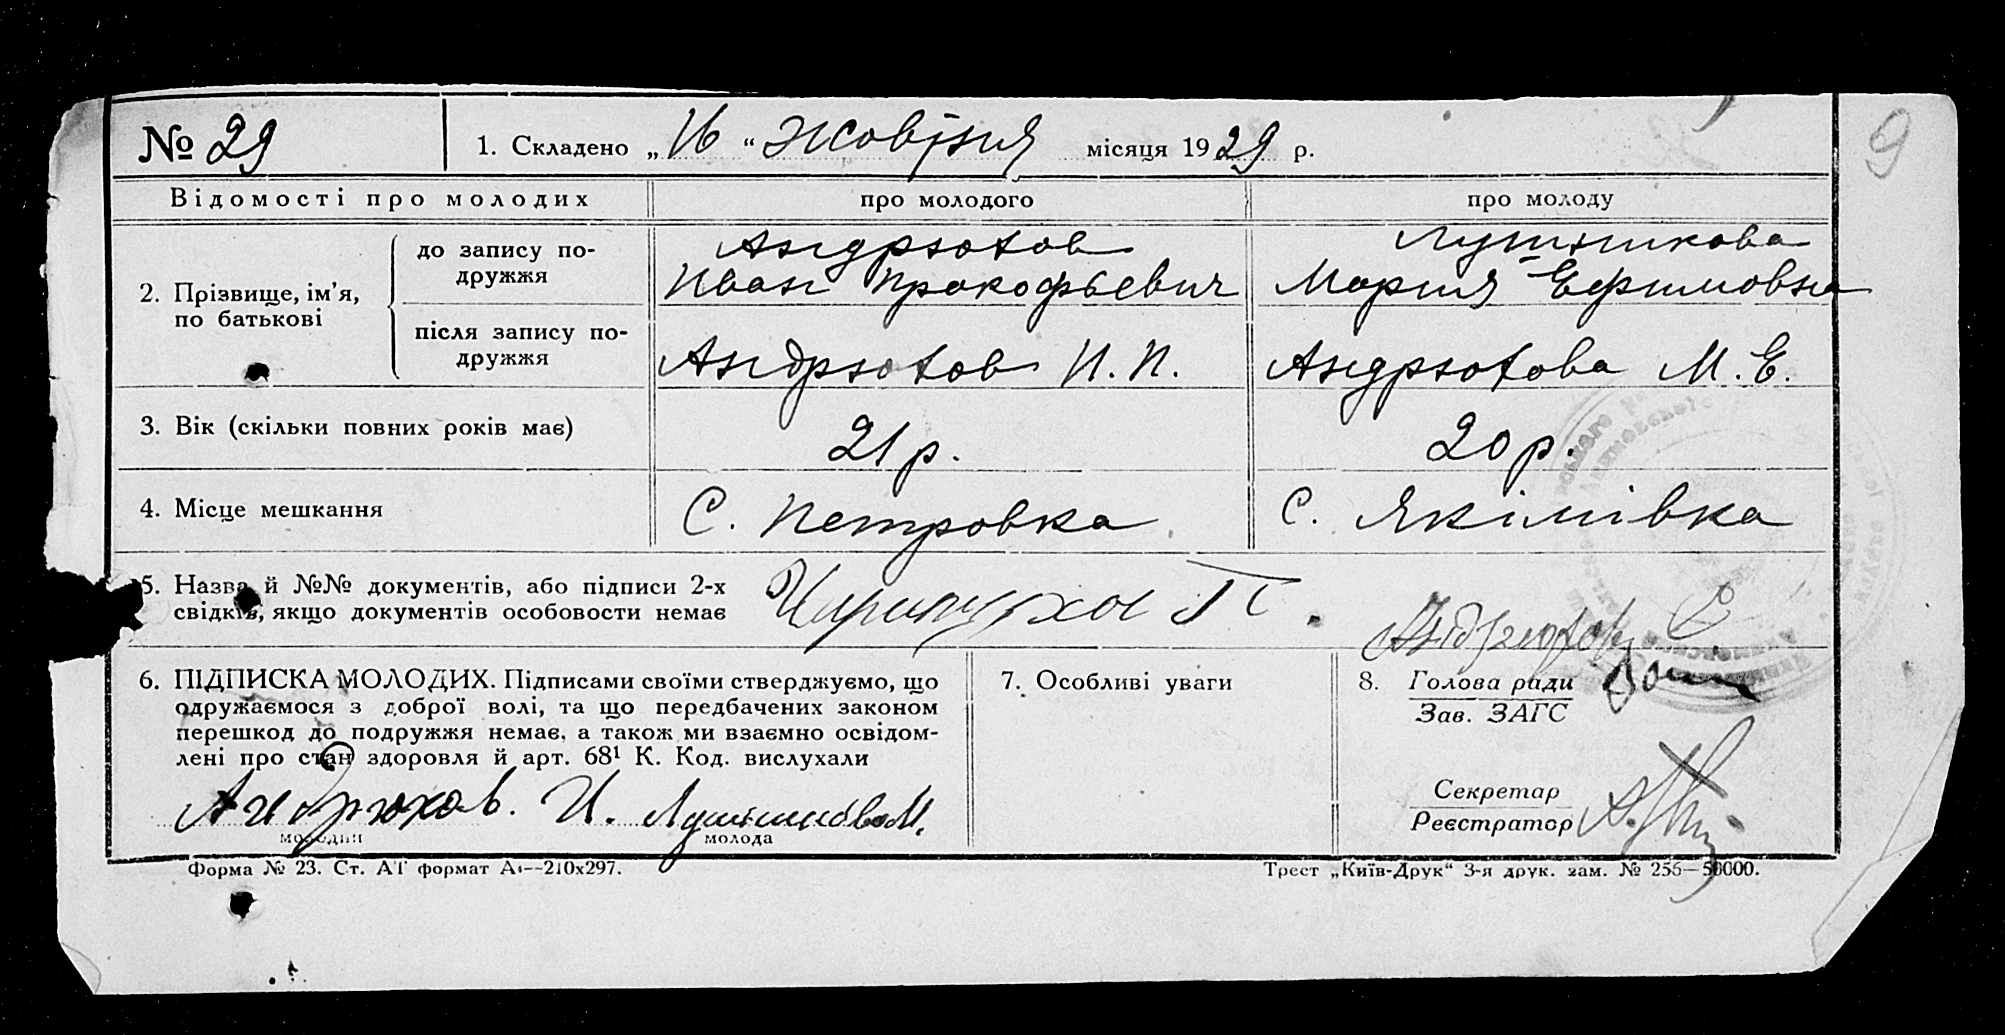 № 29
1. Складено „16“ жовтня місяця 1929 р.
Відомості про молодих
про молодого
про молоду
2. Прізвище, ім’я, по батькові
до запису подружжя
Андрюхов
Иван Прокофьевич
Лутчикова
Мария Ефимовна
після запису подружжя
Андрюхов И. П.
Андрюхова М. Е.
3. Вік (скільки повних років має)
21 р.
20 р.
4. Місце мешкання
С. Петровка
С. Якімівка
5. Назва й №№ документів, або підписи 2-х
свідків, якщо документів особовости немає
Андрюхов
6. ПІДПИСКА МОЛОДИХ. Підписами своїми стверджуємо, що
одружаємося з доброї волі, та що передбачених законом
перешкод до подружжя немає, а також ми взаємно освідом-
лені про стан здоровля й арт. 68¹ К. Код. вислухали
Андрюхов. И.
молодий
молода
7. Особливі уваги
8. Голова ради
Зав. ЗАГС
Секретар
Реєстратор
Форма № 23. Ст. АТ формат А4—210х297.
Трест „Київ-Друк“ 3-я друк. зам. № 255—50000.
9